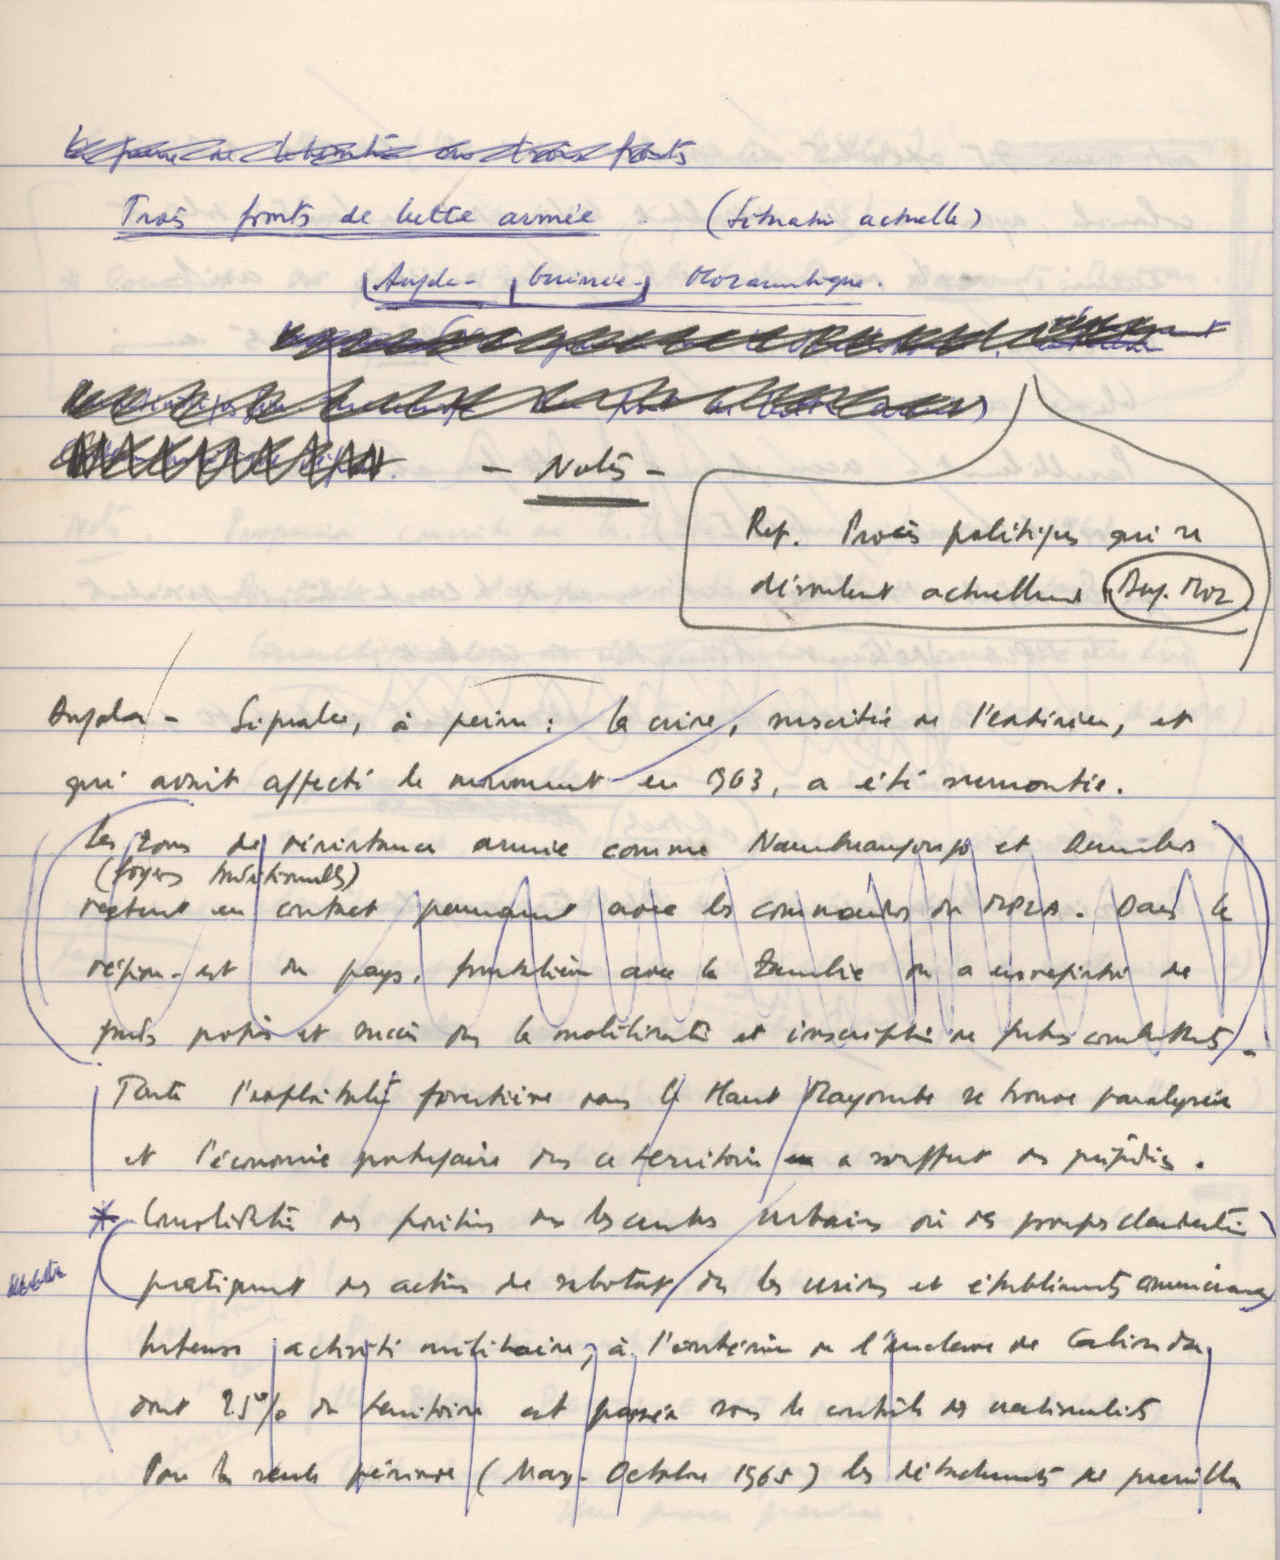 La guerre de libération sur trois fronts
Trois fronts de lutte armée (Situation actuelle)
Angola - Guinée - Mozambique.
- Notes -
Ref. Procès politiques qui se
déroulent actuellement Ang. Moz
Angola - Signaler, à peine : la crise, suscitée de l'extérieur, et
qui avait affecté le mouvement en 1963, a été surmontée.
Les zones de résistance armée comme Nambuangongo et Dembos
(foyers traditionnels)
restent en contact permanent avec les commandos du MPLA. Dans la
région-est du pays, frontalière avec la Zambie on a enregistré de
grands progrès et succès dans la mobilisation et inscription de futurs combattants.
Toute l'exploitation forestière dans le Haut Mayombe se trouve paralysée
et l'économie portugaise dans ce territoire a souffert des préjudices.
* Consolidation des positions dans les centres urbains où des groupes clandestins
pratiquent des actions de sabotage dans les usines et établissements commerciaux
Intense activité militaire, à l'intérieur de l'enclave de Cabinda,
dont 25% du territoire est passée sous le contrôle des nationalistes
Pour la seule période (May - Octobre 1965) les détachements de guerilla